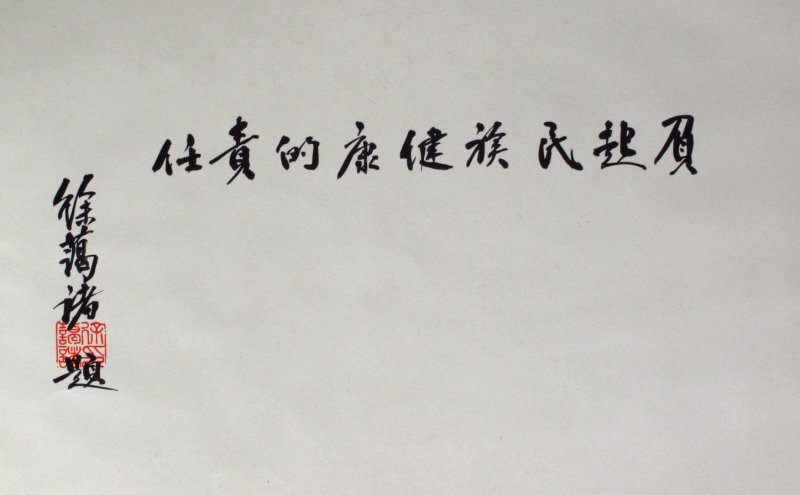 負起民族健康的責任
徐藹諸題